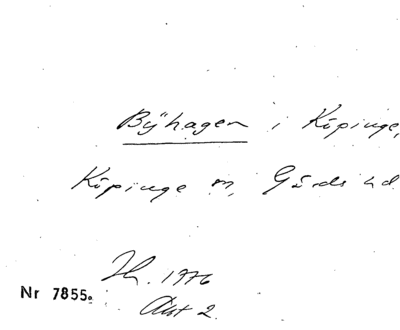 Byhagen i Köpinge,
Köpinge sn, Gärds hd
1976
Nr 7855.
Akt 2.